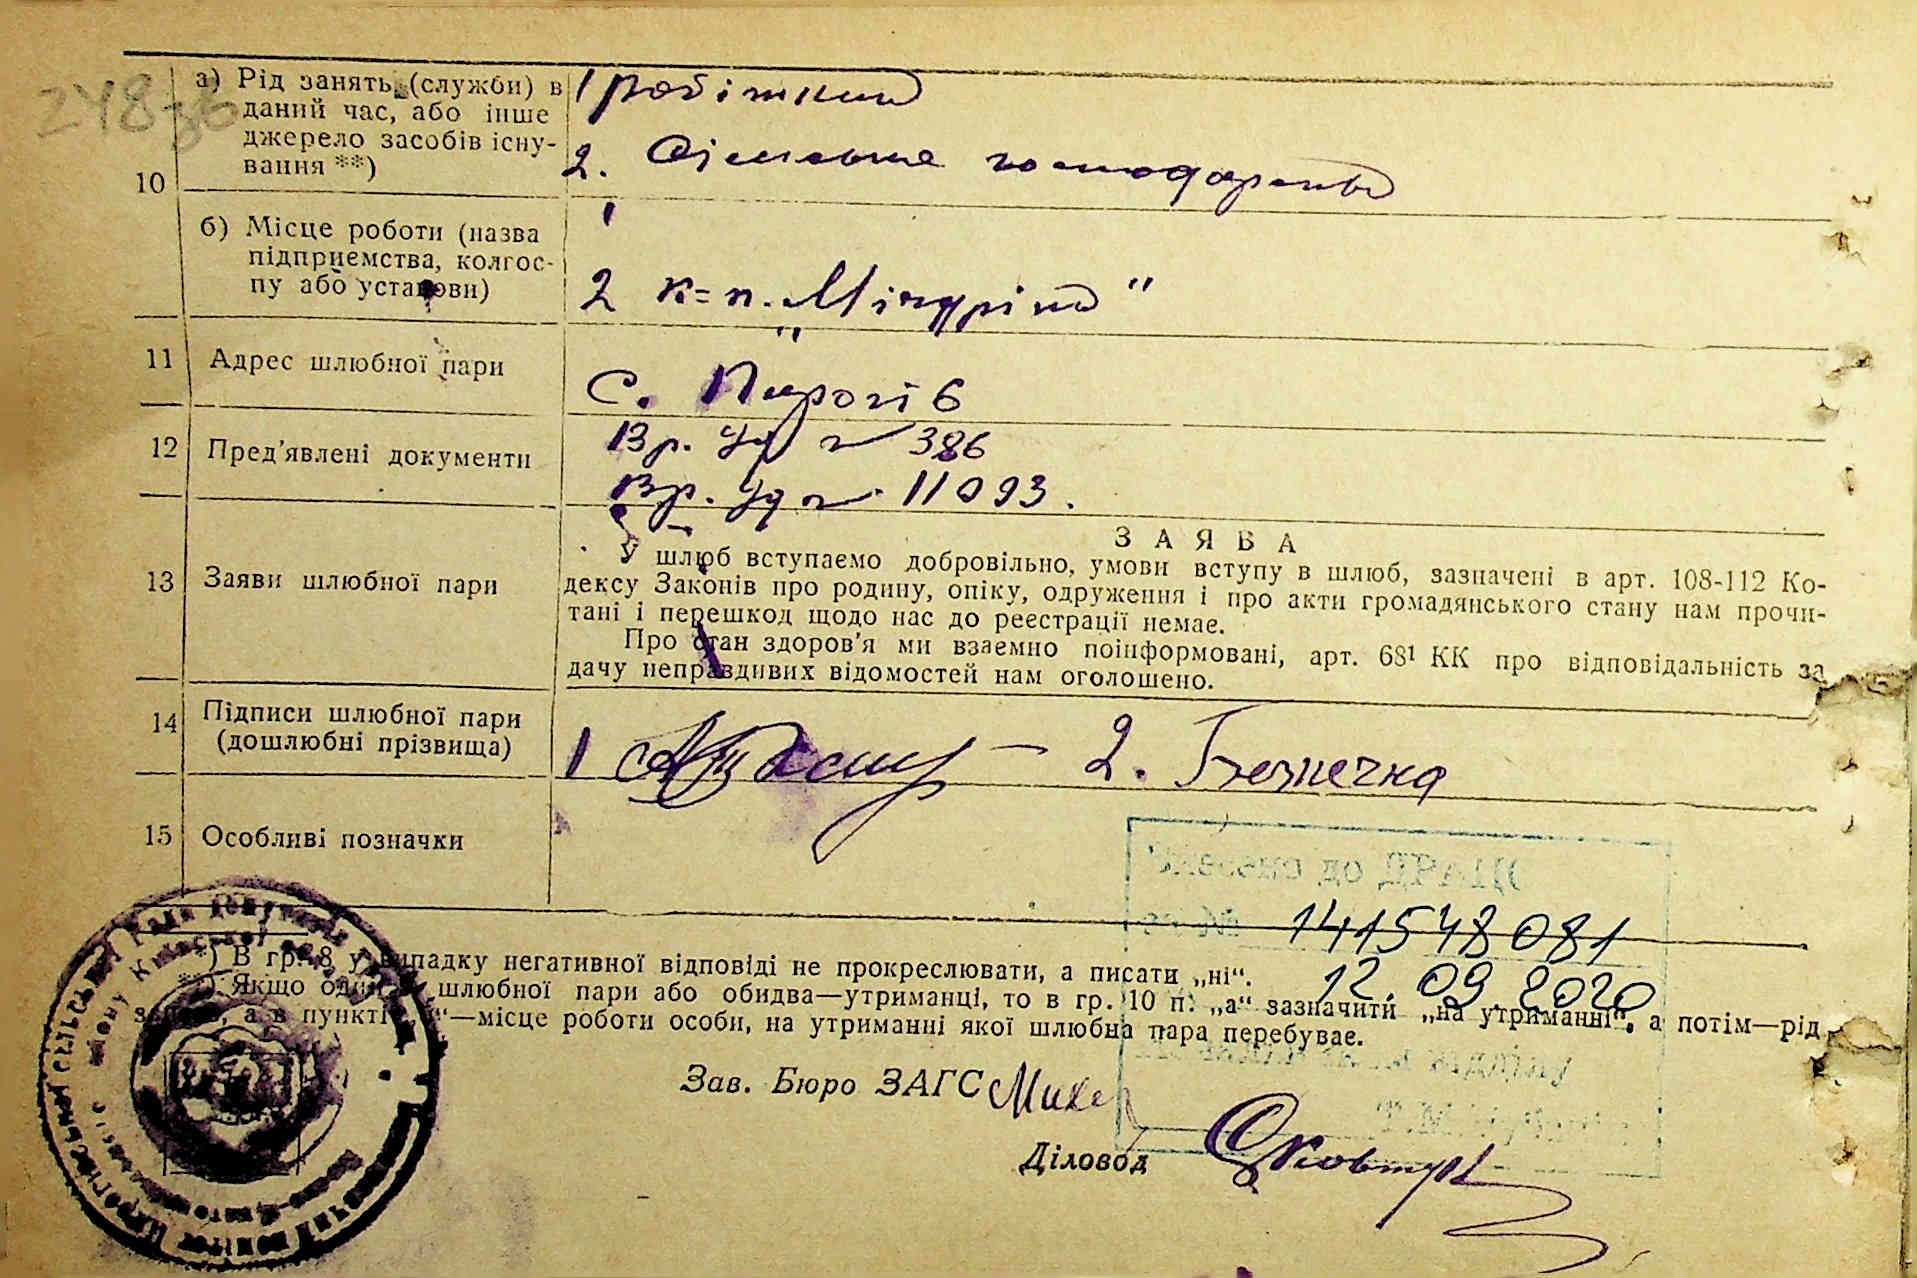 248зв
10
а) Рід занять (служби) в
даний час, або інше
джерело засобів існу-
вання **)
1 робітник
2. Сільське господарство
б) Місце роботи (назва
підприємства, колгос-
пу або установи)
1
2 к=п. „Мічуріна"
11 Адрес шлюбної пари
С. Пирогів
12 Пред'явлені документи
Вр. уд № 386
Вр. уд № 11093.
13 Заяви шлюбної пари
ЗАЯВА
У шлюб вступаємо добровільно, умови вступу в шлюб, зазначені в арт. 108-112 Ко-
дексу Законів про родину, опіку, одруження і про акти громадянського стану нам прочи-
тані і перешкод щодо нас до реєстрації немає.
Про стан здоров'я ми взаємно поінформовані, арт. 68¹ КК про відповідальність за
дачу неправдивих відомостей нам оголошено.
14 Підписи шлюбної пари
(дошлюбні прізвища)
1 2. Безпечна
15 Особливі позначки
141548081
12.09.2020
*) В гр. 8 у випадку негативної відповіді не прокреслювати, а писати „ні“.
**) Якщо один з шлюбної пари або обидва—утриманці, то в гр. 10 п. „а“ зазначити „на утриманні“, а потім—рід
а в пункті —місце роботи особи, на утриманні якої шлюбна пара перебуває.
Зав. Бюро ЗАГС
Діловод